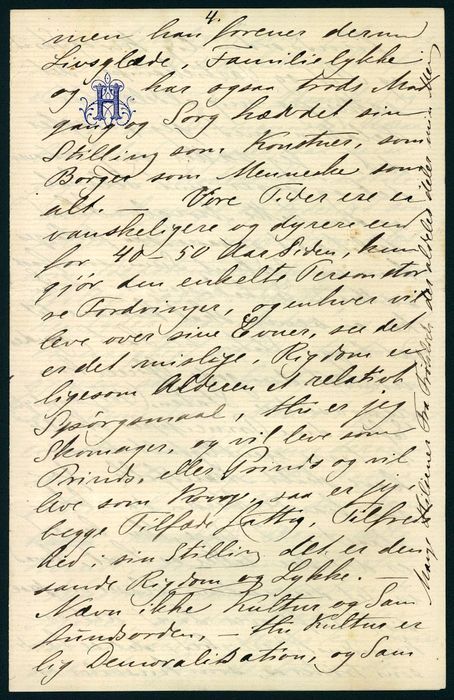 4.
men han forener derimod
Livsglæde, Familielykke
og H har ogsaa trods Mod
gang og Sorg hævdet sin
Stilling som Konstner, som
Borger som Menneske som
alt. — Vore Tider ere
vanskeligere og dyrere end
for 40–50 Aar Siden, kun
gjör den enkelte Person stör
re Fordringer, og enhver vil
leve over sine Evner, see det
er det mislige, Rigdom er
ligesom Alderen et relativt
Spörgsmaal, er jeg
Skomager, og vil leve som
Prinds, eller Prinds og vil
leve som Konge, saa er jeg i
begge Tilfælde fattig, Tilfreds
hed i sin Stilling det er den
sande Rigdom og Lykke. —
Nævn ikke Kultur og Sam
fundsorden, — Kultur er
lig Demoralisation, og Sam
Mange Hilsener fra Frölich der aldeles deler min Me